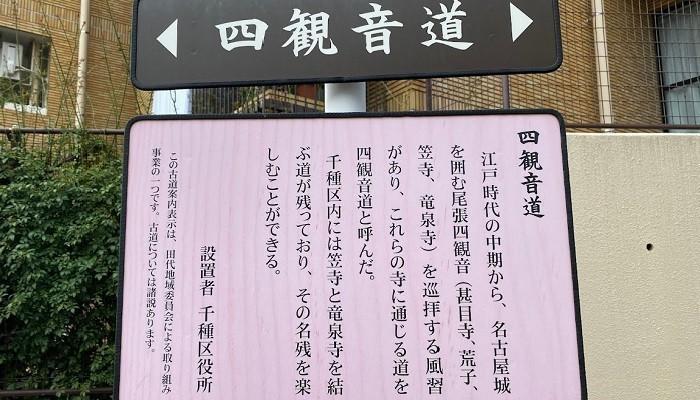 四観音道
四観音道
江戸時代の中期から、名古屋城
を囲む尾張四観音（甚目寺、荒子、
笠寺、竜泉寺）を巡拝する風習
があり、これらの寺に通じる道を
四観音道と呼んだ。
千種区内には笠寺と竜泉寺を結
ぶ道が残っており、その名残を楽
しむことができる。
設置者 千種区役所
この古道案内表示は、田代地域委員会による取り組み
事業の一つです。古道については諸説あります。